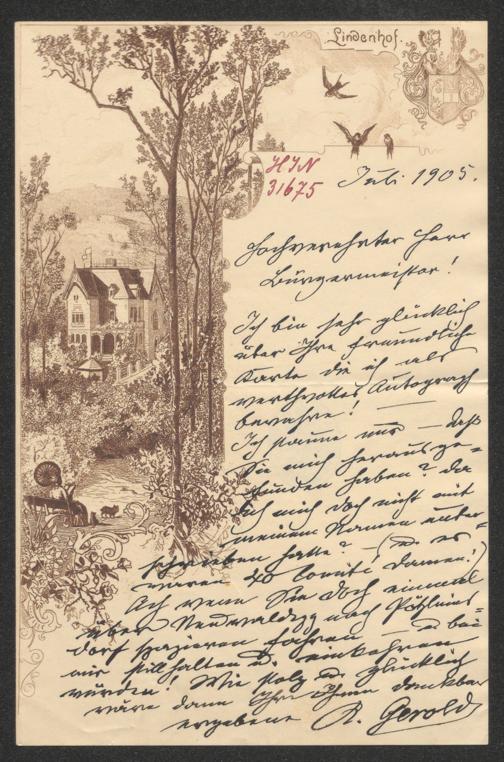 Lindenhof.
HIN
31675
Juli 1905.
Hochverehrter Herr
Bürgermeister!
Ich bin sehr glücklich
über Ihre freundlich
Karte die ich als
werthvolles Autograph
bewahre! —
Ich staune nur — daß
Sie mich herausge=
funden haben? da
ich mich doch nicht mit
meinem Namen unter
schrieben hatte? — (u. es
waren 40 Comité Damen!)
Ach wenn Sie doch einmal
über Neuwaldegg nach Pötzleins=
dorf spazieren fahren — u. bei
mir stillhalten u. einkehren
würden! Wie stolz u. glücklich
wäre dann Ihre Ihnen dankbar
ergebene R. Gerold